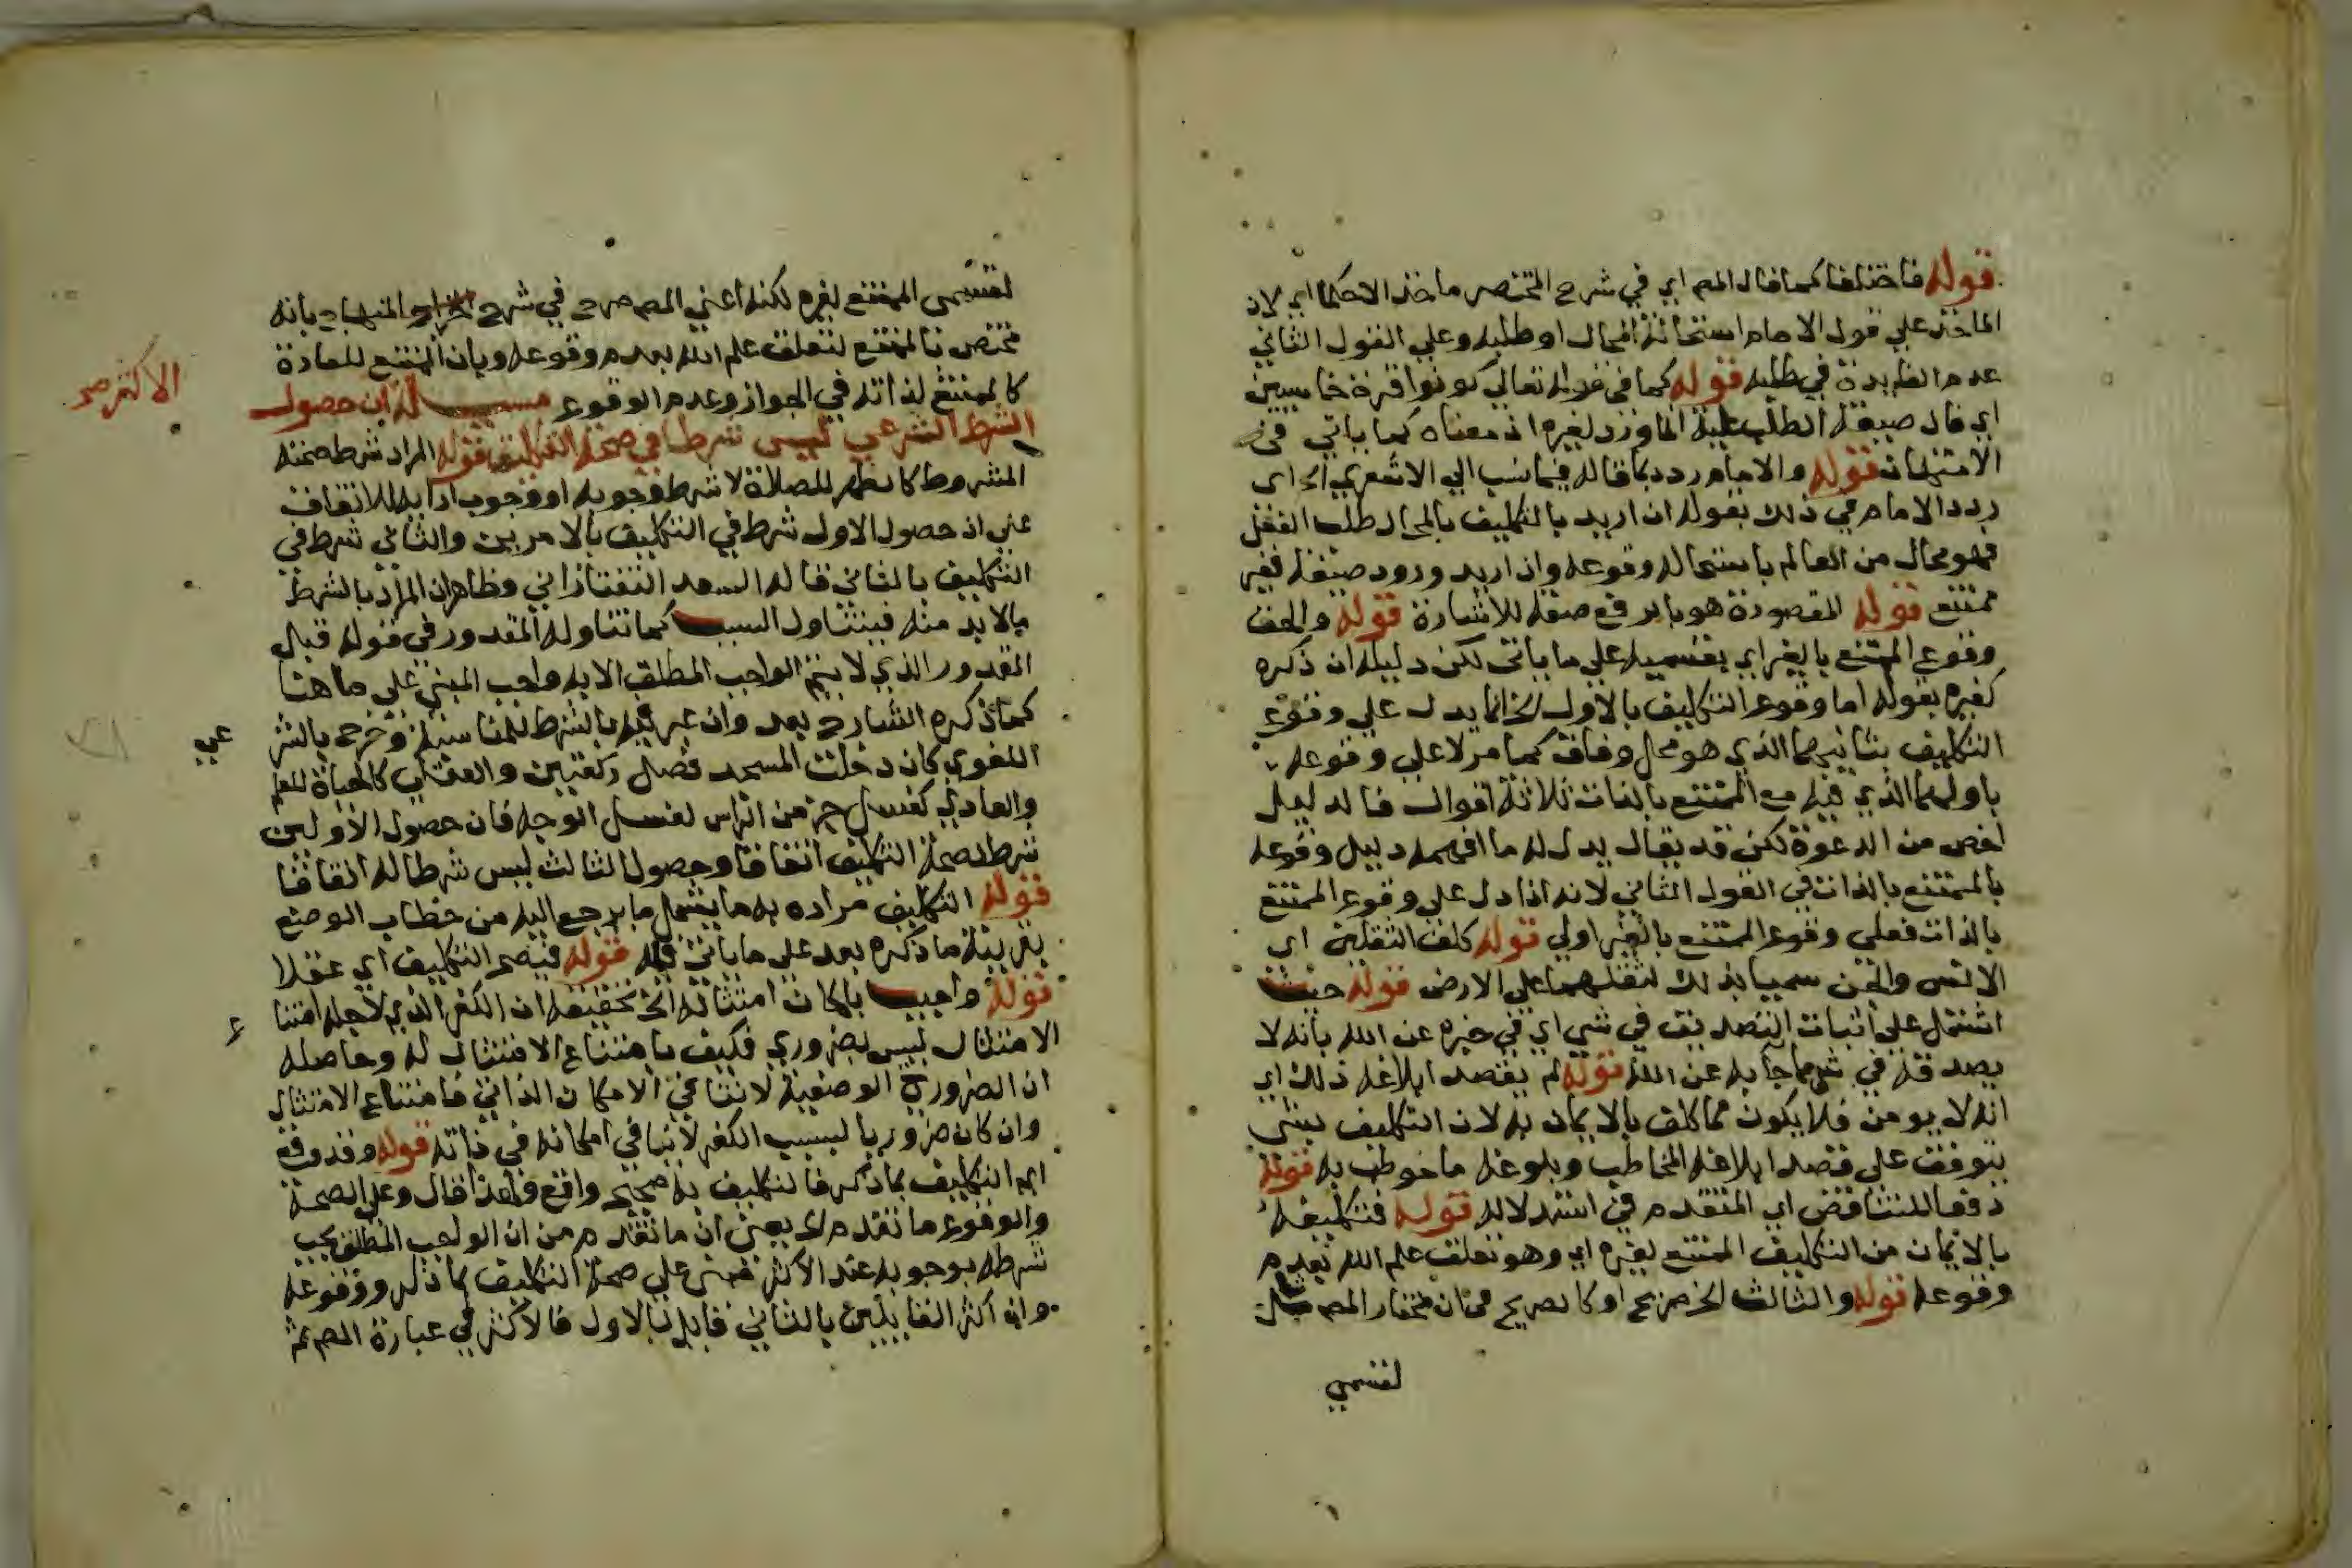 قوله فاختلفا كما قال المص اي في شرح المختصر ماخذ الاحكما اي لان
الماخذ علي قول الامام استحالة المحال او طلبه وعلي القول الثاني
عدم الفايدة في طلبه قوله كما في قوله تعالي كونوا قردة خاسيين
اي فان صيغة الطلب عليه لغيره اذ معناه كما ياتي في
الامتهان قوله والامام ردد بما قاله فيما نسب الي الاشعري اي
ردد الامام في ذلك بقوله ان اريد بالتكليف بالمحال طلب الفعل
فهو محال من العالم باستحالة وقوعه وان اريد ورود صيغة فغير
ممتنع قوله المقصودة هو بالرفع صفة للاشارة قوله والحق
وقوع الممتنع بالغير اي بقسميه علي ما ياتي لكن دليله ان ذكره
كغيره بقوله اما وقوع التكليف بالاول الخ انما يدل علي وقوع
التكليف بثانيهما الذي هو محل وفاق كما مر لا علي وقوعه
باولهما الذي فيه مع الممتنع بالذات ثلاثة اقوال فالدليل
اخص من الدعوة لكن قد يقال يدل له ما افهمه دليل وقوعه
بالممتنع بالذات في القول الثاني لانه اذا دل علي وقوع الممتنع
بالذات فعلي وقوع الممتنع بالغير اولي قوله كلف الثقلين اي
الانس والجن سميا بذلك لثقلهما علي الارض قوله حيث
اشتمل علي اثبات التصديق في شي اي في خبره عن الله بانه لا
يصدقه في شي مما جابه عن الله قوله لم يقصد ابلاغه ذلك اي
انه لا يومن فلا يكون مما كلف بالايمان به لان التكليف بشي
يتوقف علي قصد ابلاغه المخاطب وبلوغه ما خوطب به قوله
دفعا للتناقض اي المتقدم في استدلاله قوله فتكليفه
بالايمان من التكليف الممتنع لغيره اي وهو تعلق علم الله بعدم
وقوعه قوله والثالث الخ صريح او كالصريح في ان مختار المص شامل
لقسمي
لقسمي الممتنع لغيره لكنه اعني المص صرح في شرح المنهاج بانه
مختص بالممتنع لتعلق علم الله بعدم وقوعه وبان الممتنع للعادة
كالممتنع لذاته في الجواز وعدم الوقوع مسيلة ان حصول
الاكثر صح
الشرط الشرعي ليس شرطا في صحة التكليف قوله المراد شرط صحته
المشروط كالطهر للصلاة لا شرط وجوبه او وجوب ادايه للاتفاق
علي ان حصول الاول شرط في التكليف بالامرين والثاني شرط في
التكليف بالثاني قاله السعد التفتازاني وظاهر ان المراد بالشرط
ما لا بد منه فيتناول السبب كما تناوله المقدور في قوله قبل
المقدور الذي لا يتم الواجب المطلق الا به واجب المبني علي ما هنا
كما ذكره الشارح بعد وان عبر فيه بالشرط للمناسبة وخرج بالشر
عي
اللغوي كان دخلت المسجد فصل ركعتين والعقلي كالحياة للعلم
والعادي كغسل جز من الراس لغسل الوجه فان حصول الاولين
شرط لصحة التكليف اتفاقا وحصول الثالث ليس شرطا له اتفاقا
قوله التكليف مراده به ما يشمل ما يرجع اليه من خطاب الوضع
بقرينة ما ذكره بعد علي ما ياتي فيه قوله فيصح التكليف اي عقلا
قوله واجيب بامكان امتثاله الخ تحقيقه ان الكفر الذي لاجله امتنا
ع
الامتثال ليس بضروري فكيف بامتناع الامتثال له وحاصله
ان الضروري الوصفية لا تنافي الامكان الذاتي فامتناع الامتثال
وان كان ضروريا لسبب الكفر لا ينافي امكانه في ذاته قوله وقد وقع
ايم التكليف بما ذكر فالتكليف به صحيح واقع قال وعلي الصحة
والوقوع ما تقدم الخ يعني ان ما تقدم من ان الواجب المطلق يجب
شرطه بوجوبه عند الاكثر مبني علي صحة التكليف بما ذكر ووقوعه
وان اكثر القايلين بالثاني قايل بالاول فالاكثر في عبارة المص ثم